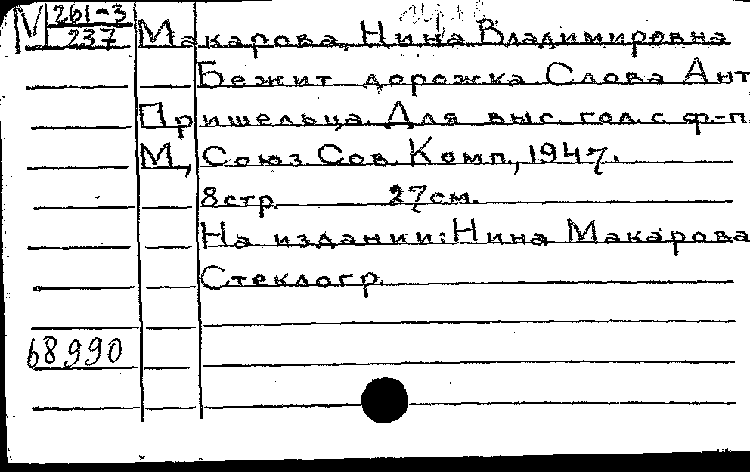 М 261-3
237
Макарова, Нина Владимировна
Бежит дорожка Слова Ант
Пришельца. Для выс. гол. с ф-п.
М., Союз Сов. Комп., 1947.
8 стр. 27 см.
На издании: Нина Макарова
Стеклогр.
68990